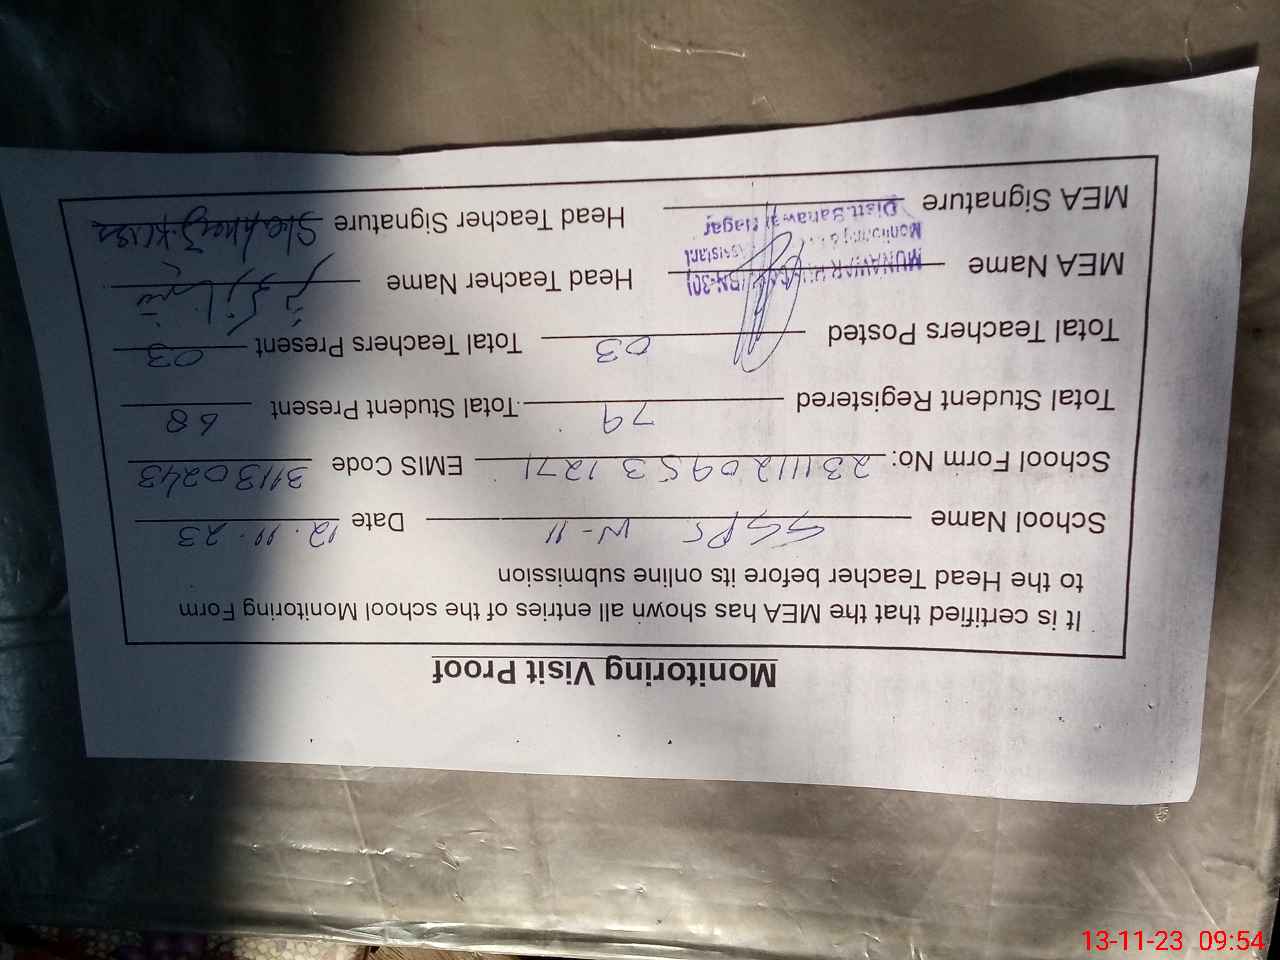 Monitoring Visit Proof
It is certified that the MEA has shown all entries of the school Monitoring Form
to the Head Teacher before its online submission
School Name GGPS W-11 Date 12.11.23
School Form No: 23111209531271 EMIS Code 31130243
Total Student Registered 79 Total Student Present 68
Total Teachers Posted 03 Total Teachers Present 03
MEA Name MUNAWAR (BN-30) Head Teacher Name
Monitoring Assistant
MEA Signature Head Teacher Signature
Distt. Bahawal Nagar
13-11-23 09:54